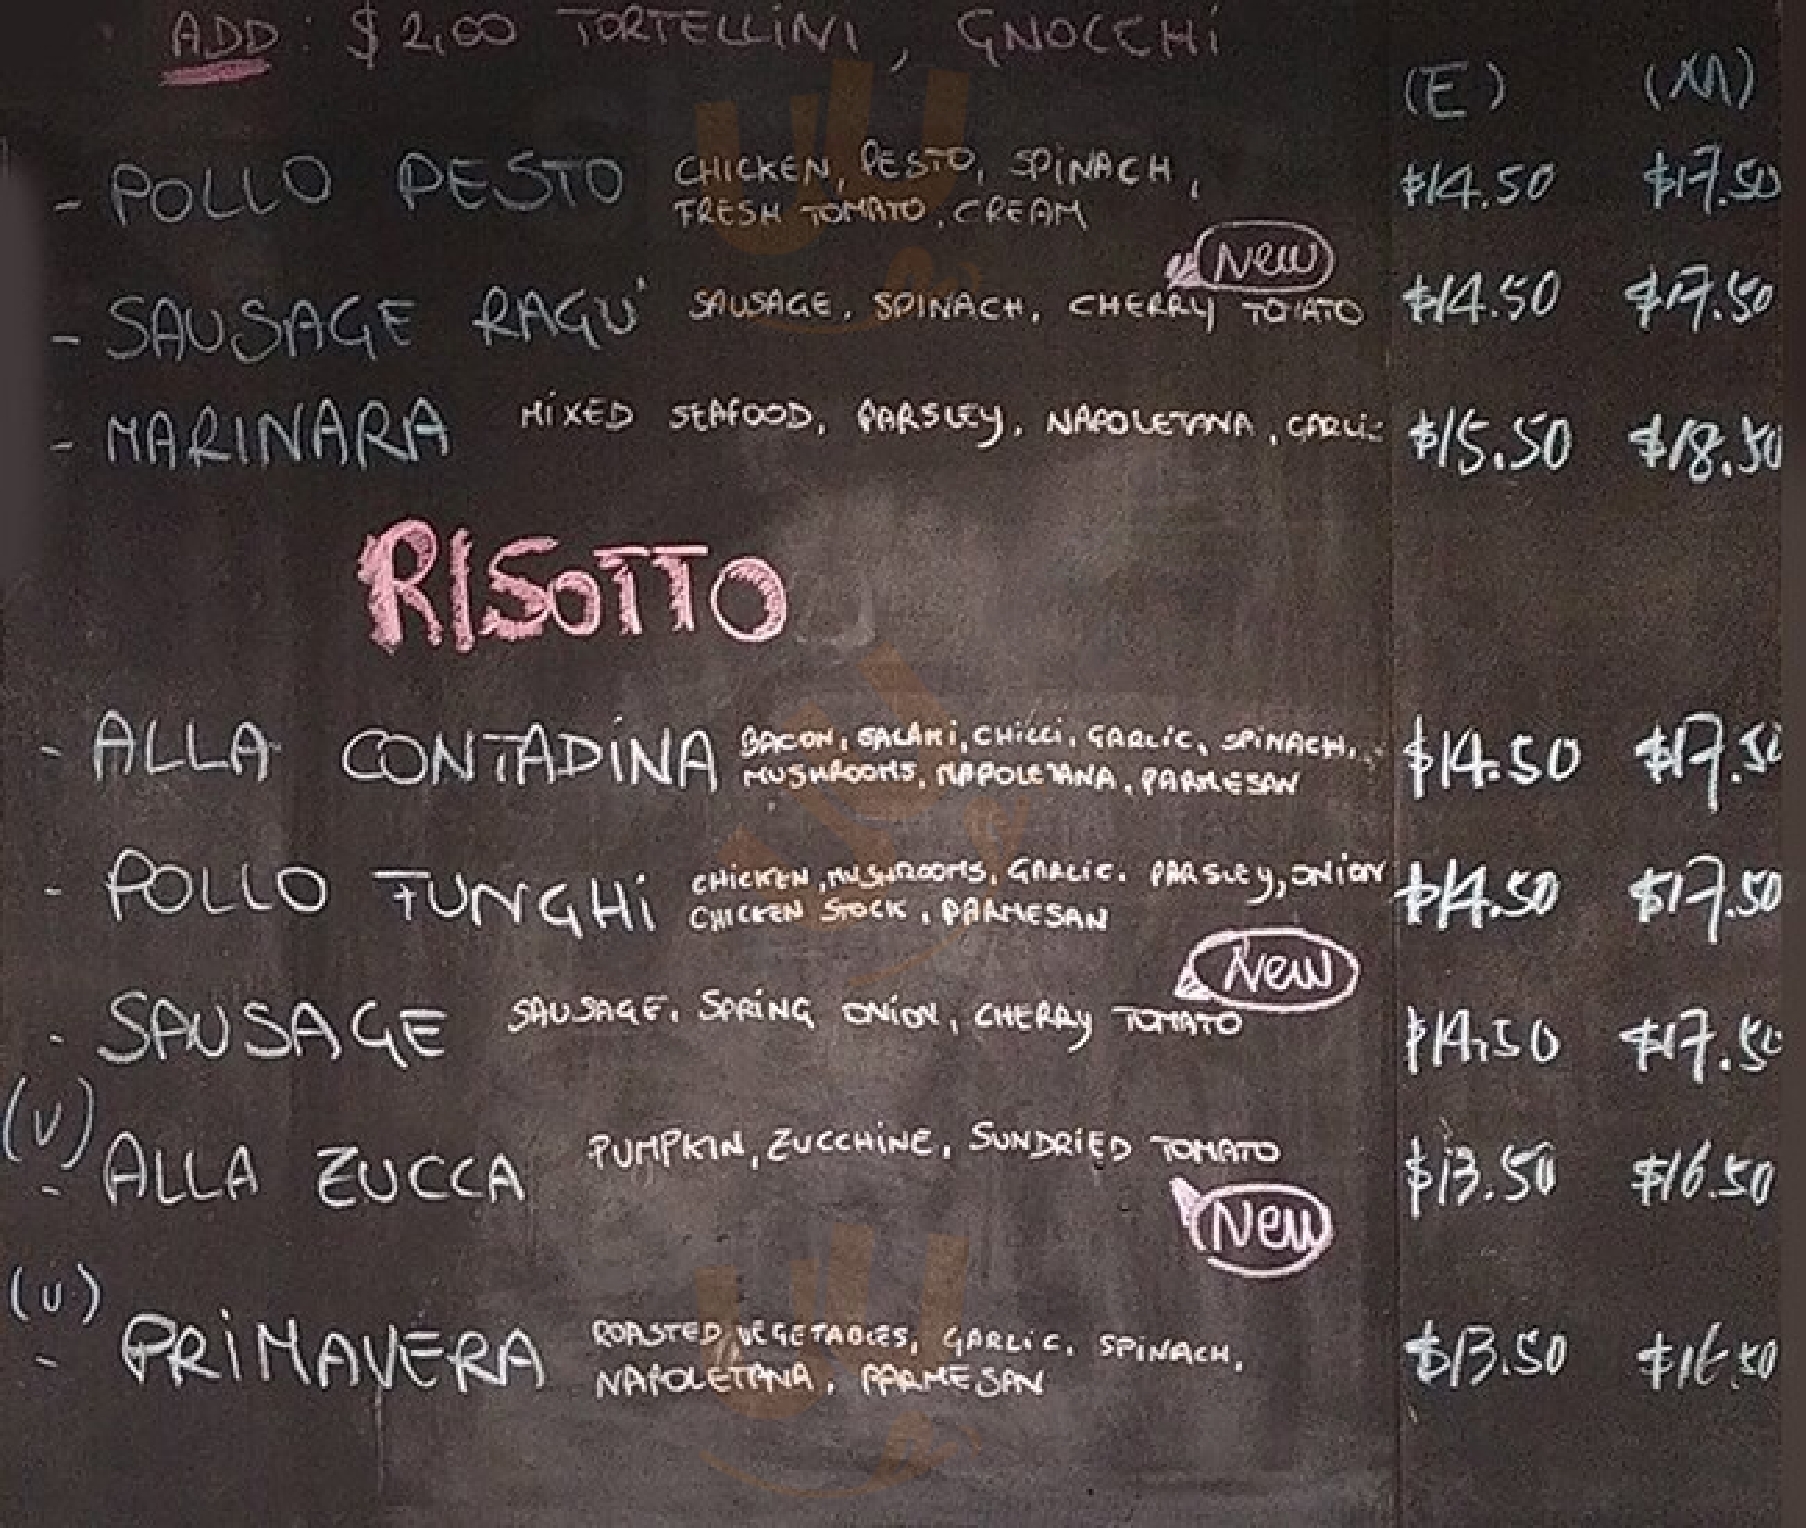 ADD: $2,00 TORTELLINI, GNOCCHI
(E) (M)
- POLLO PESTO CHICKEN, PESTO, SPINACH, $14.50 $17.50
FRESH TOMATO, CREAM
New
- SAUSAGE RAGU' SAUSAGE, SPINACH, CHERRY TOMATO $14.50 $17.50
- MARINARA MIXED SEAFOOD, PARSLEY, NAPOLETANA, GARLIC $15.50 $18.50
RISOTTO
- ALLA CONTADINA BACON, SALAMI, CHILLI, GARLIC, SPINACH, $14.50 $17.50
MUSHROOMS, NAPOLETANA, PARMESAN
- POLLO FUNGHI CHICKEN, MUSHROOMS, GARLIC, PARSLEY, ONION $14.50 $17.50
CHICKEN STOCK, PARMESAN
New
- SAUSAGE SAUSAGE, SPRING ONION, CHERRY TOMATO $14,50 $17.50
(V)
- ALLA ZUCCA PUMPKIN, ZUCCHINE, SUNDRIED TOMATO $13.50 $16.50
New
(V)
- PRIMAVERA ROASTED VEGETABLES, GARLIC, SPINACH, $13.50 $16.50
NAPOLETANA, PARMESAN